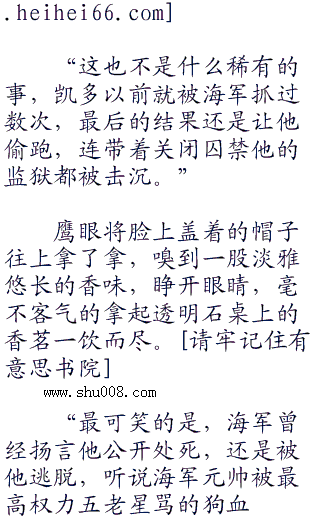 .heihei66.com]
“这也不是什么稀有的
事，凯多以前就被海军抓过
数次，最后的结果还是让他
偷跑，连带着关闭囚禁他的
监狱都被击沉。”
鹰眼将脸上盖着的帽子
往上拿了拿，嗅到一股淡雅
悠长的香味，睁开眼睛，毫
不客气的拿起透明石桌上的
香茗一饮而尽。[请牢记住有
意思书院]
www.shu008.com
“最可笑的是，海军曾
经扬言他公开处死，还是被
他逃脱，听说海军元帅被最
高权力五老星骂的狗血